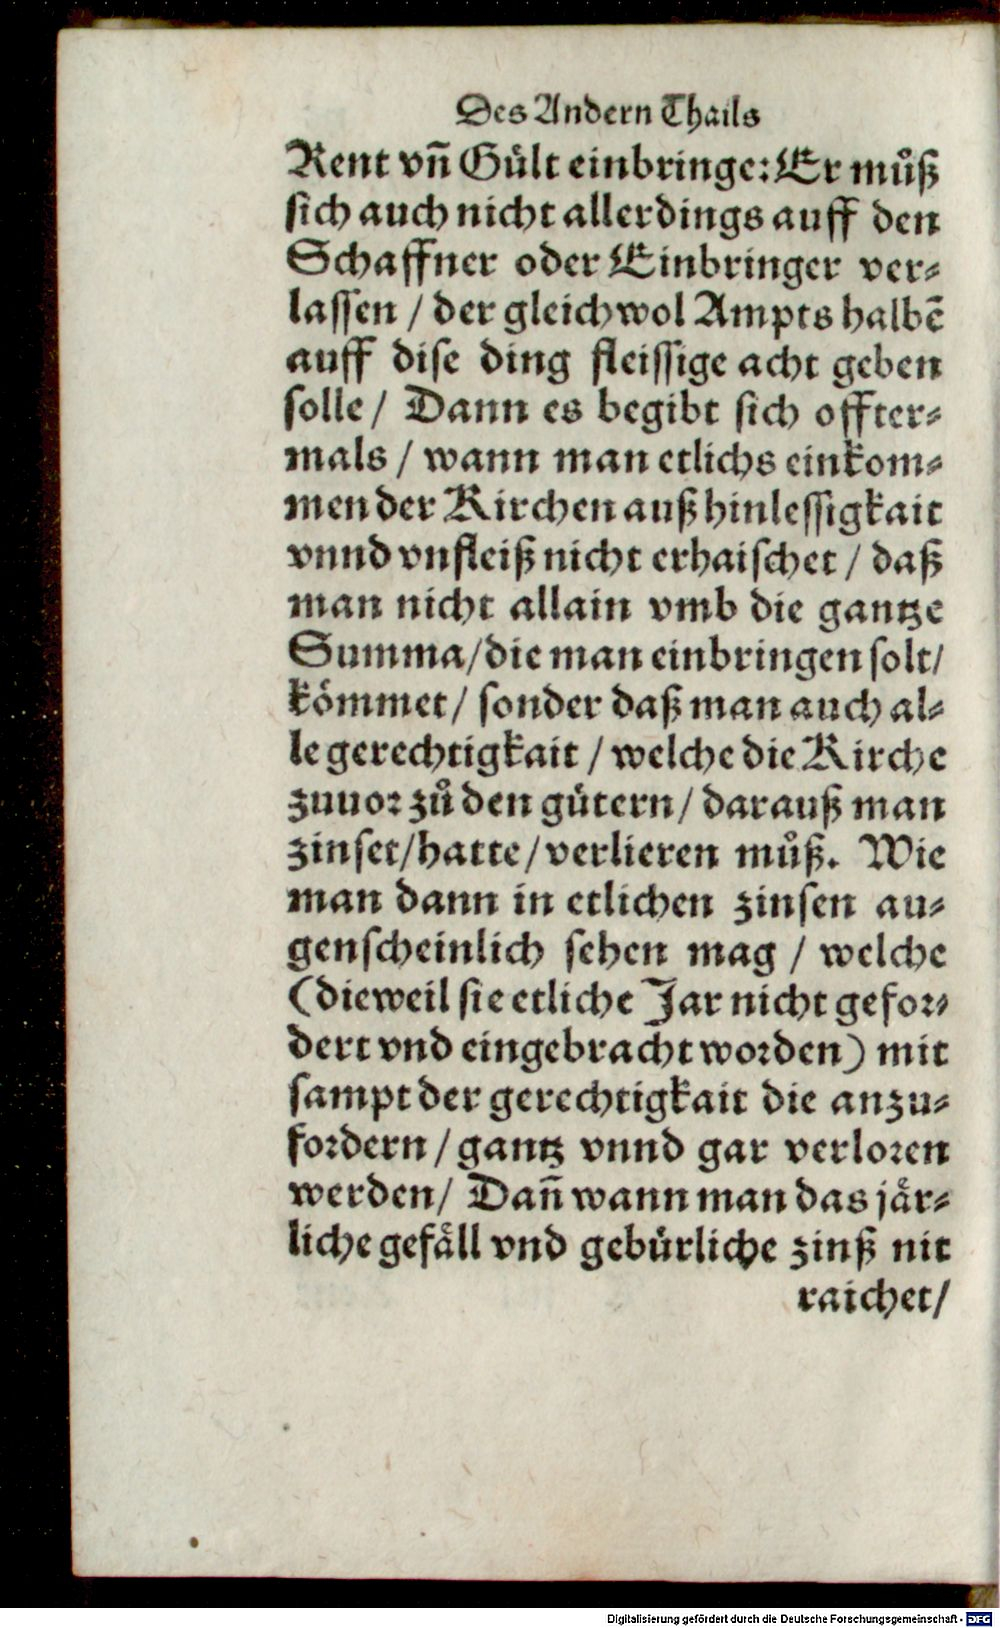 Des Andern Thails
Rent vn̄ Gült einbringe: Er můß
sich auch nicht allerdings auff den
Schaffner oder Einbringer ver⸗
lassen / der gleichwol Ampts halbē
auff dise ding fleissige acht geben
solle / Dann es begibt sich offter⸗
mals / wann man etlichs einkom⸗
men der Kirchen auß hinlessigkait
vnnd vnfleiß nicht erhaischet / daß
man nicht allain vmb die gantze
Summa / die man einbringen solt /
kömmet / sonder daß man auch al⸗
le gerechtigkait / welche die Kirche
zuuor zů den gütern / darauß man
zinset / hatte / verlieren můß. Wie
man dann in etlichen zinsen au⸗
genscheinlich sehen mag / welche
(dieweil sie etliche Jar nicht gefor⸗
dert vnd eingebracht worden) mit
sampt der gerechtigkait die anzu⸗
fordern / gantz vnnd gar verloren
werden / Dan̄ wann man das jär⸗
liche gefäll vnd gebürliche zinß nit
raichet /
Digitalisierung gefördert durch die Deutsche Forschungsgemeinschaft - DFG